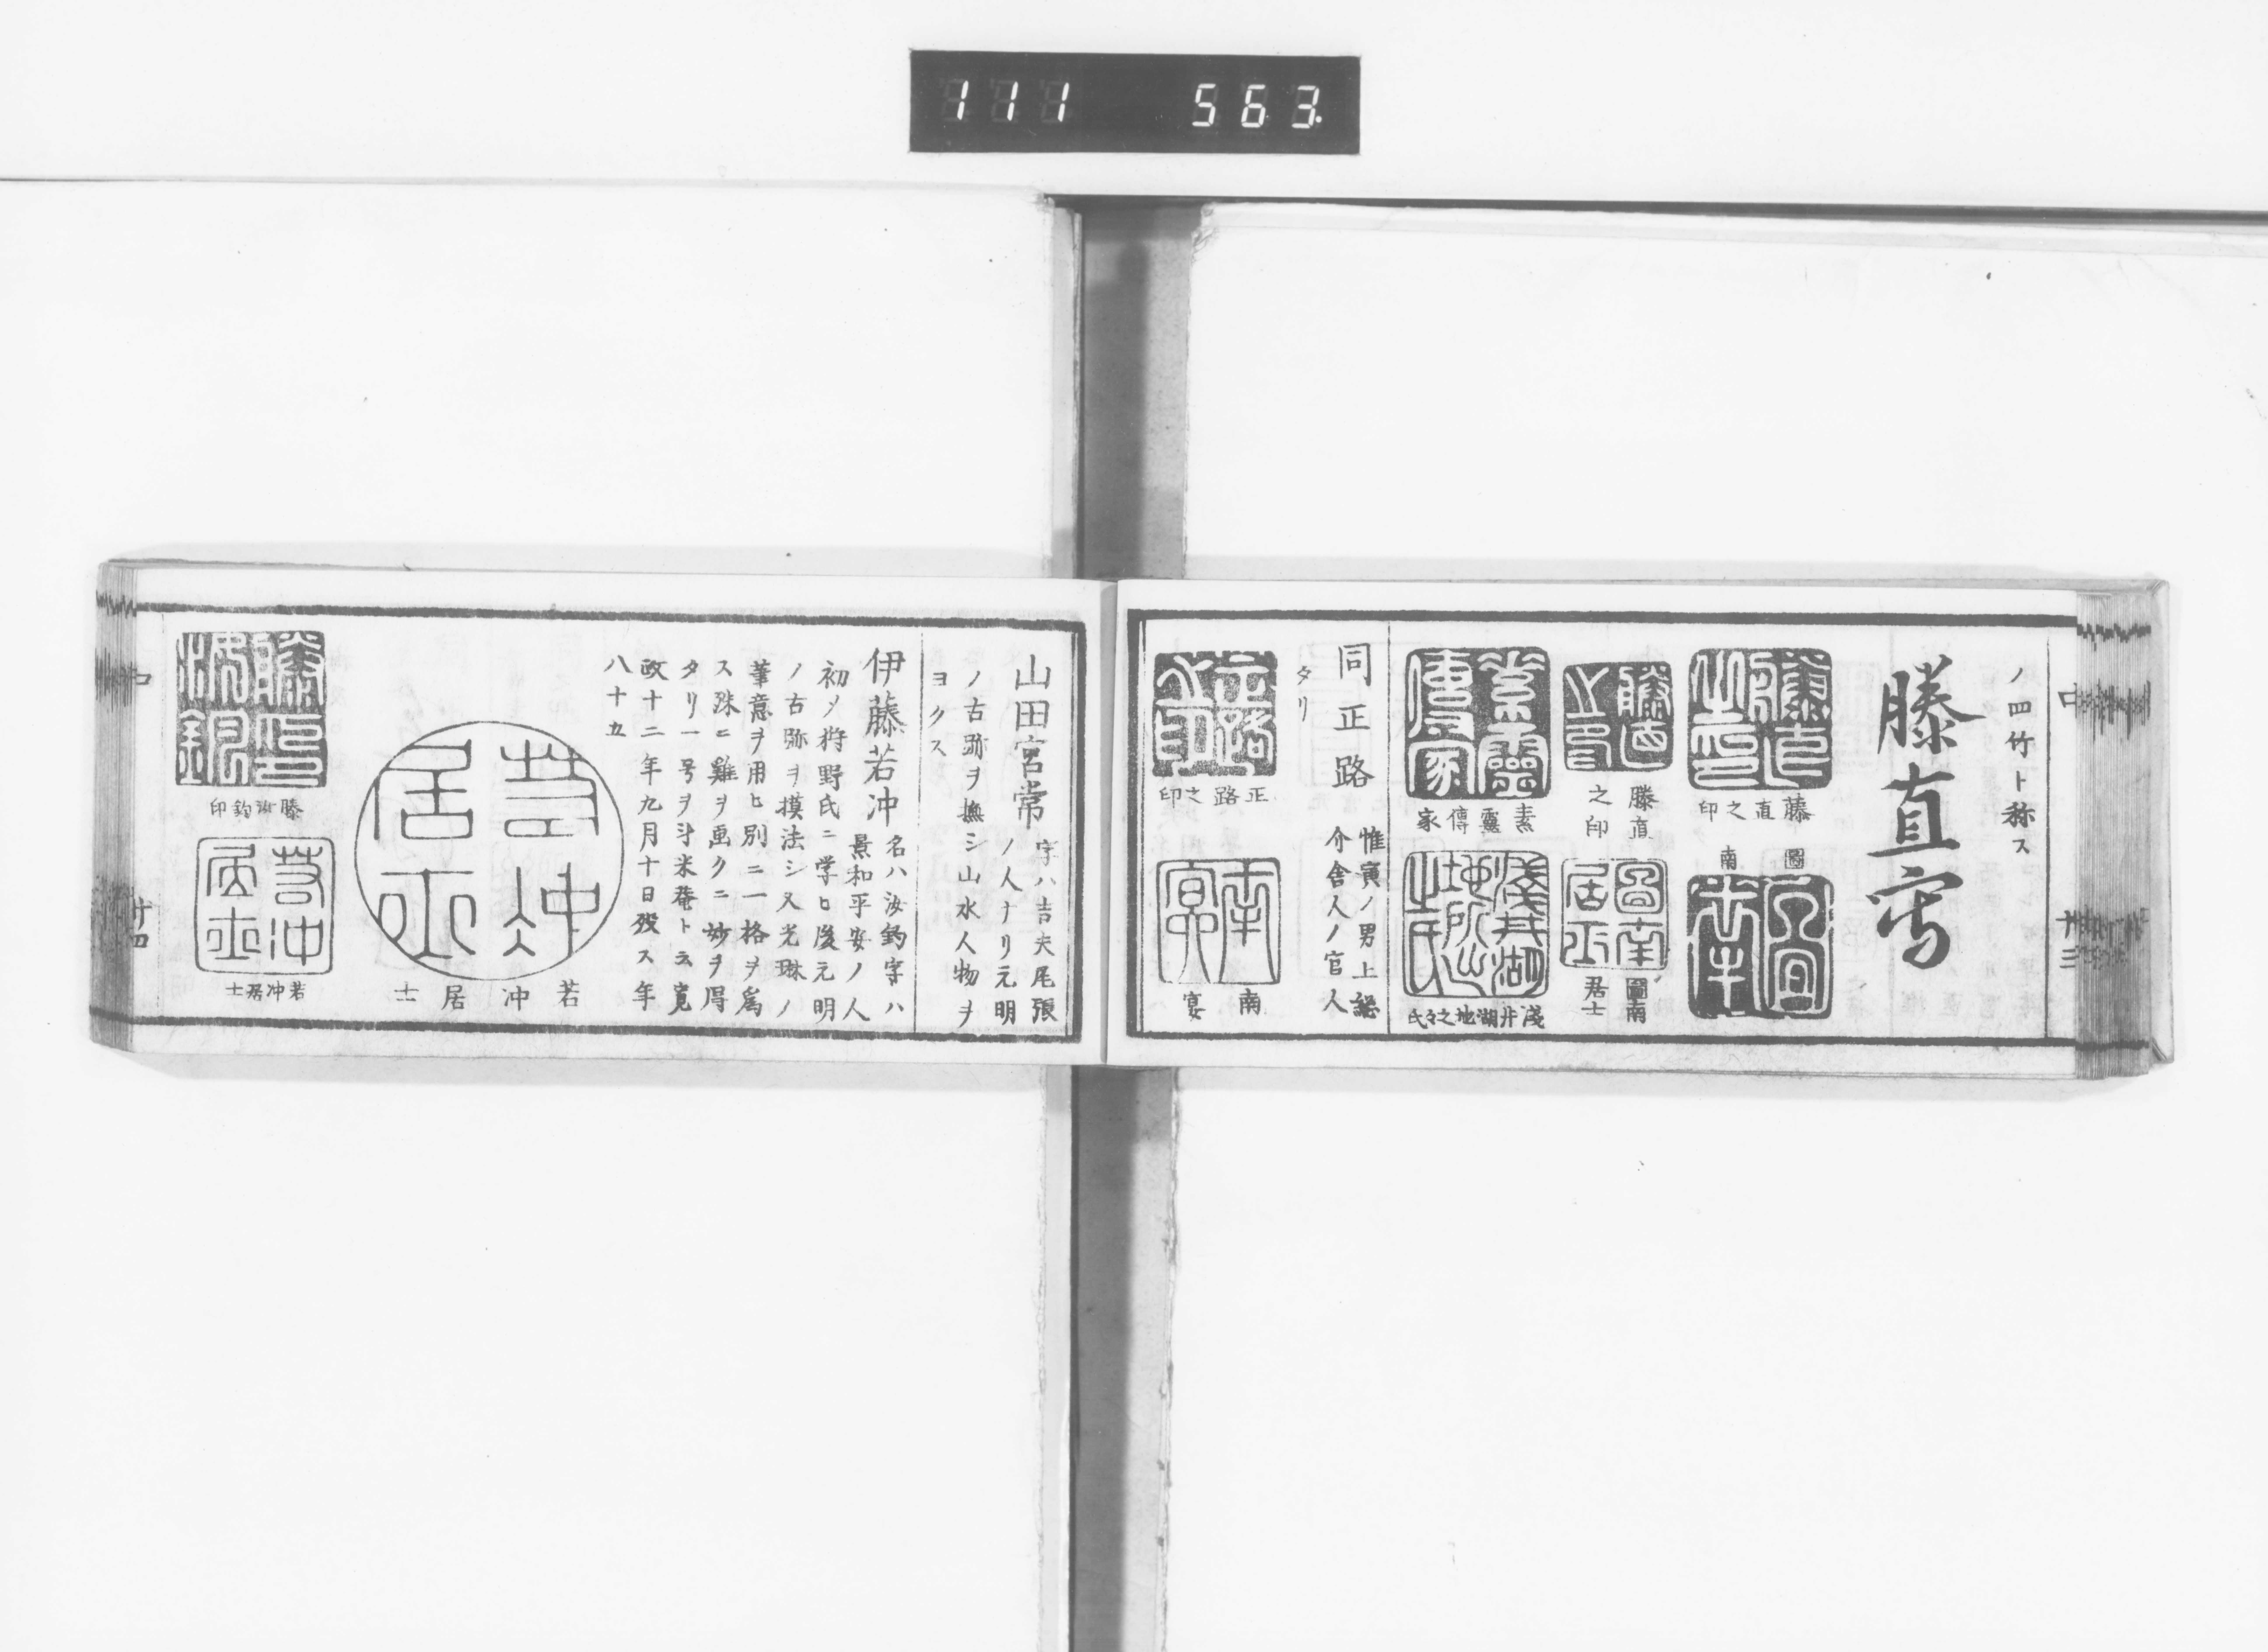 111 563.
ノ四竹ト称ス
藤直寫
藤直之印
圖南
藤直之印
圖南居士
素靈傳家
淺井湖地之氏
同正路
惟寅ノ男上総
介舎人ノ官人
タリ
正路之印
南宴
中
十三
山田宮常
字ハ吉夫尾張
ノ人ナリ元明
ノ古跡ヲ撫シ山水人物ヲ
ヨクス
伊藤若冲
名ハ汝鈞字ハ
景和平安ノ人
初メ狩野氏ニ学ヒ後元明
ノ古跡ヲ摸法シ又光琳ノ
筆意ヲ用ヒ別ニ一格ヲ爲
ス殊ニ雞ヲ画クニ妙ヲ得
タリ一号ヲ斗米菴ト云寛
政十二年九月十日歿ス年
八十五
若冲居士
藤汝鈞印
若冲居士
中
十四